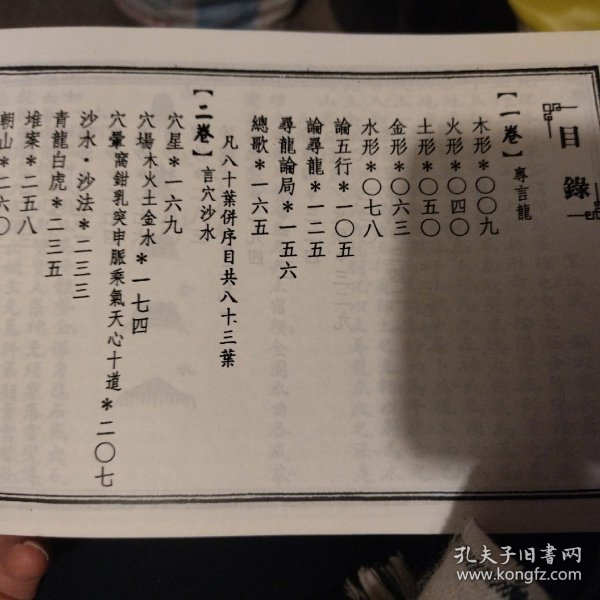 目錄
【一卷】專言龍
木形＊〇〇九
火形＊〇四〇
土形＊〇五〇
金形＊〇六三
水形＊〇七八
論五行＊一〇五
論尋龍＊一二五
尋龍論局＊一五六
總歌＊一六五
凡八十葉併序目共八十三葉
【二卷】言穴沙水
穴星＊一六九
穴場木火土金水＊一七四
穴暈窩鉗乳突申脈乘氣天心十道＊二〇七
沙水・沙法＊二三三
青龍白虎＊二三五
堆案＊二五八
朝山＊二六〇
孔夫子旧书网
www.kongfz.com